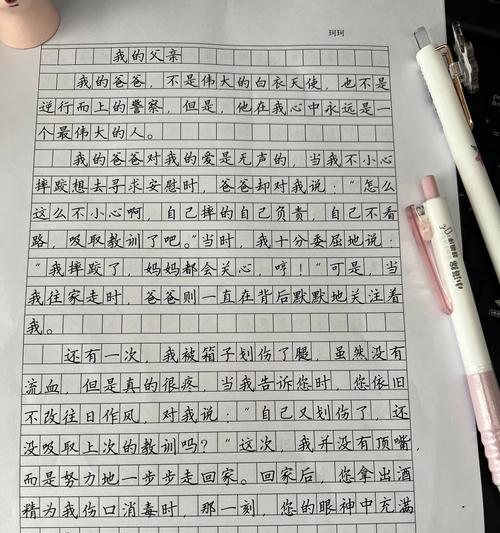 珂珂
我的父亲
我的爸爸，不是伟大的白衣天使，也不是
逆行而上的警察，但是，他在我心中永远是一
个最伟大的人。
我的爸爸对我的爱是无声的，当我不小心
摔跤想去寻求安慰时，爸爸却对我说：“怎么
这么不小心啊，自己摔的自己负责，自己不看
路，吸取教训了吧。”当时，我十分委屈地说：
“我摔跤了，妈妈都会关心，哼！”可是，当
我往家走时，爸爸则一直在背后默默地关注着
我。
还有一次，我被箱子划伤了腿，虽然没有
流血，但是真的很疼，当我告诉您时，您依旧
不改往日作风，对我说：“自己又划伤了，还
没吸取上次的教训吗？”这次，我并没有顶嘴，
而是努力地一步步走回家。回家后，您拿出酒
精为我伤口消毒时，那一刻，您的眼神中充满